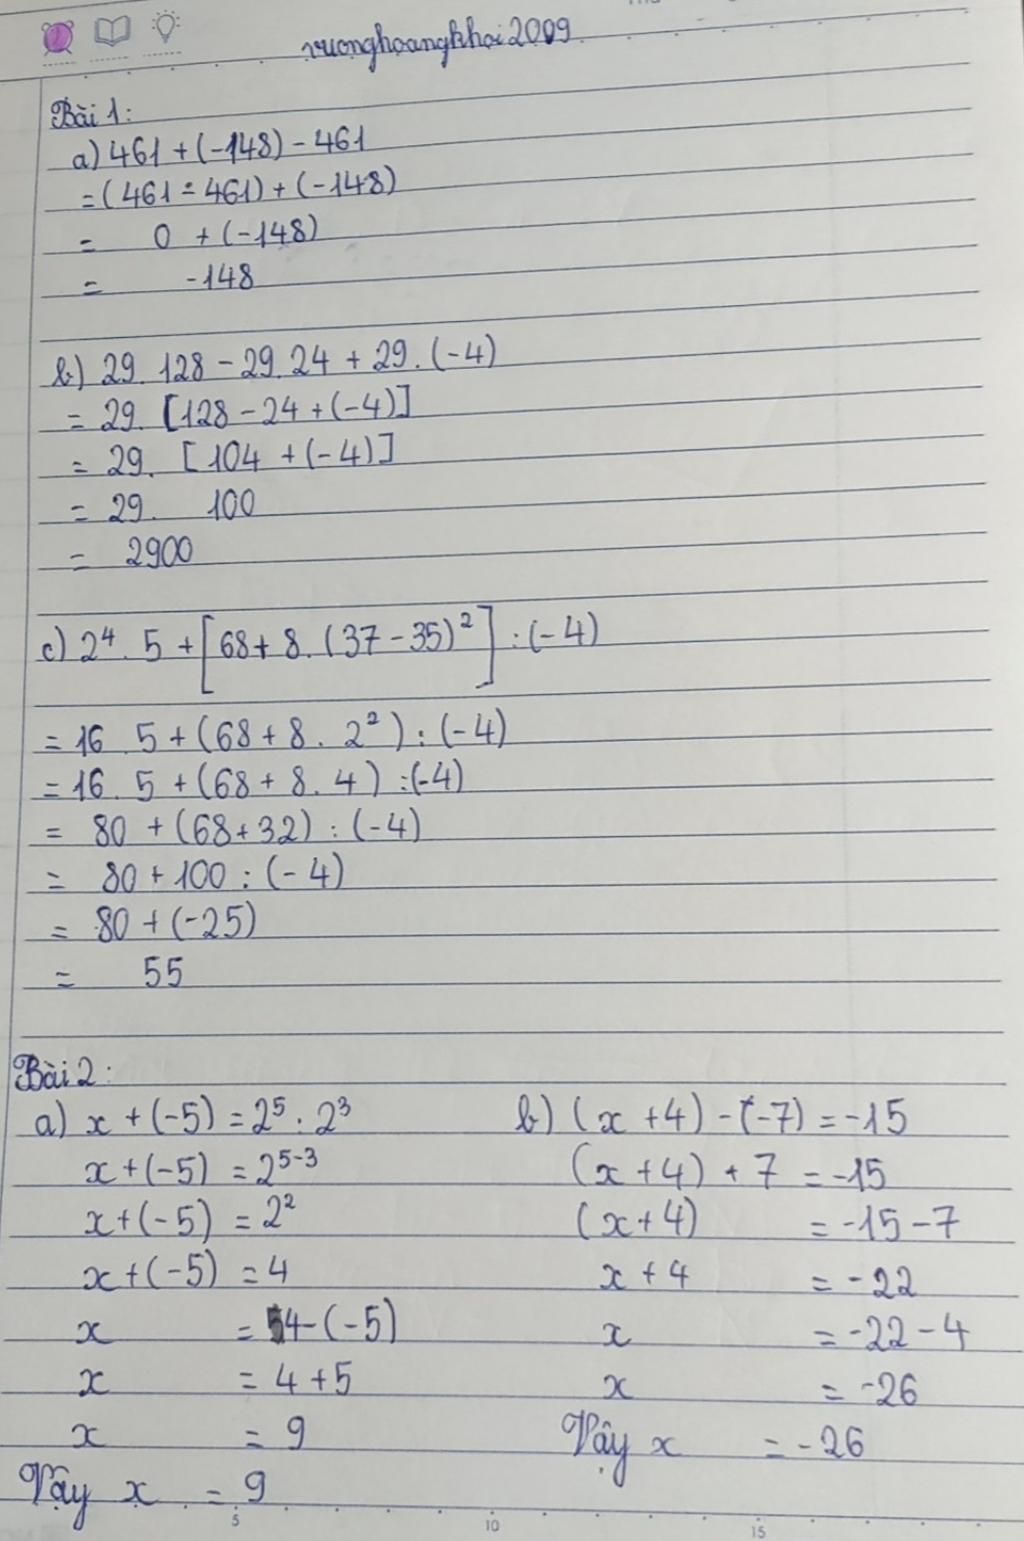 vuonghoangkhoi2009
Bài 1:
a) 461 + (-148) - 461
= (461 - 461) + (-148)
= 0 + (-148)
= -148
b) 29. 128 - 29. 24 + 29. (-4)
= 29. [128 - 24 + (-4)]
= 29. [104 + (-4)]
= 29. 100
= 2900
c) 2⁴. 5 + [68 + 8. (37 - 35)²] : (-4)
= 16. 5 + (68 + 8. 2²) : (-4)
= 16. 5 + (68 + 8. 4) : (-4)
= 80 + (68 + 32) : (-4)
= 80 + 100 : (-4)
= 80 + (-25)
= 55
Bài 2:
a) x + (-5) = 2⁵ : 2³
x + (-5) = 2⁵⁻³
x + (-5) = 2²
x + (-5) = 4
x = 4 - (-5)
x = 4 + 5
x = 9
Vậy x = 9
b) (x + 4) - (-7) = -15
(x + 4) + 7 = -15
(x + 4) = -15 - 7
x + 4 = -22
x = -22 - 4
x = -26
Vậy x = -26
5 10 15